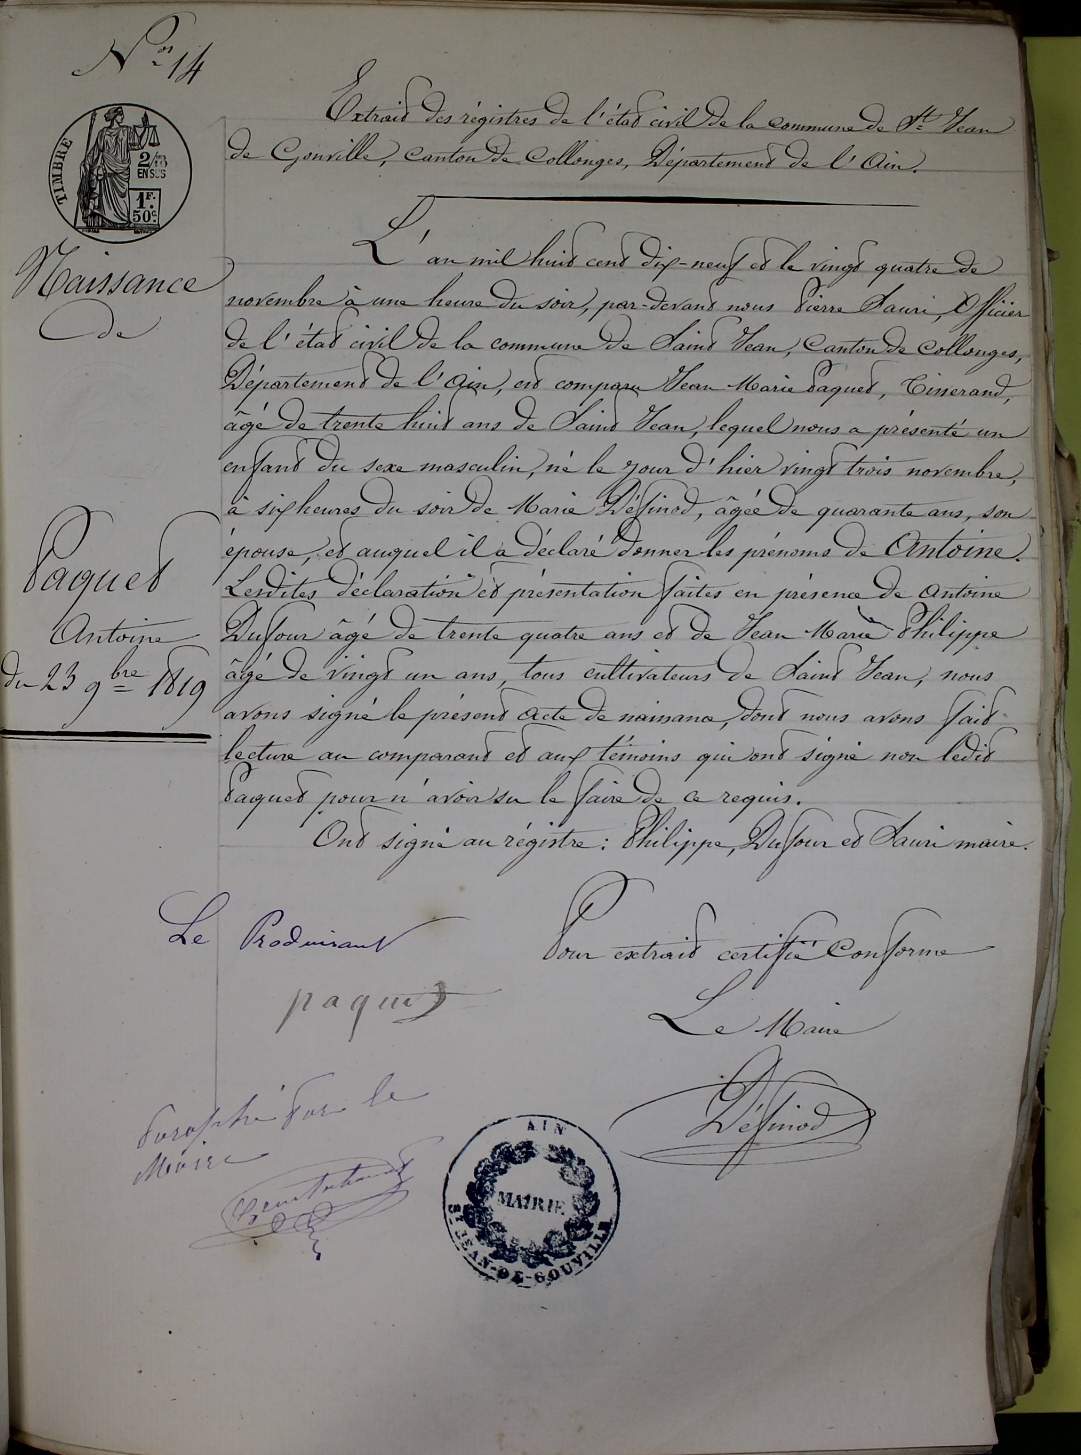 Nos 14
TIMBRE
2/10
EN SUS
1F.
50c
Extrait des régistres de l'état civil de la commune de St Jean
de Gonville, Canton de Collonges, Département de l'Ain.
Naissance
de
Paquet
Antoine
du 23 9bre 1819
L'an mil huit cent dix-neuf et le vingt quatre de
novembre à une heure du soir, par-devant nous Pierre Lauri, Officier
de l'état civil de la commune de Saint Jean, Canton de Collonges,
Département de l'Ain, est comparu Jean Marie Paquet, Tisserand,
âgé de trente huit ans de Saint Jean, lequel nous a présenté un
enfant du sexe masculin, né le jour d'hier vingt trois novembre,
à six heures du soir de Marie Désinod, âgée de quarante ans, son
épouse, et auquel il a déclaré donner les prénoms de Antoine.
Lesdites déclaration et présentation faites en présence de Antoine
Dufour âgé de trente quatre ans et de Jean Marie Philippe
âgé de vingt un ans, tous cultivateurs de Saint Jean, nous
avons signé le présent acte de naissance, dont nous avons fait
lecture au comparant et aux témoins qui ont signé non ledit
Paquet pour n'avoir su le faire de ce requis.
Ont signé au régistre: Philippe, Dufour et Lauri maire.
Le Produisant
paquet
Pour extrait certifié Conforme
Le Maire
Désinod
Paraphé par le
Maire
AIN
MAIRIE
ST JEAN-DE-GOUVILLE